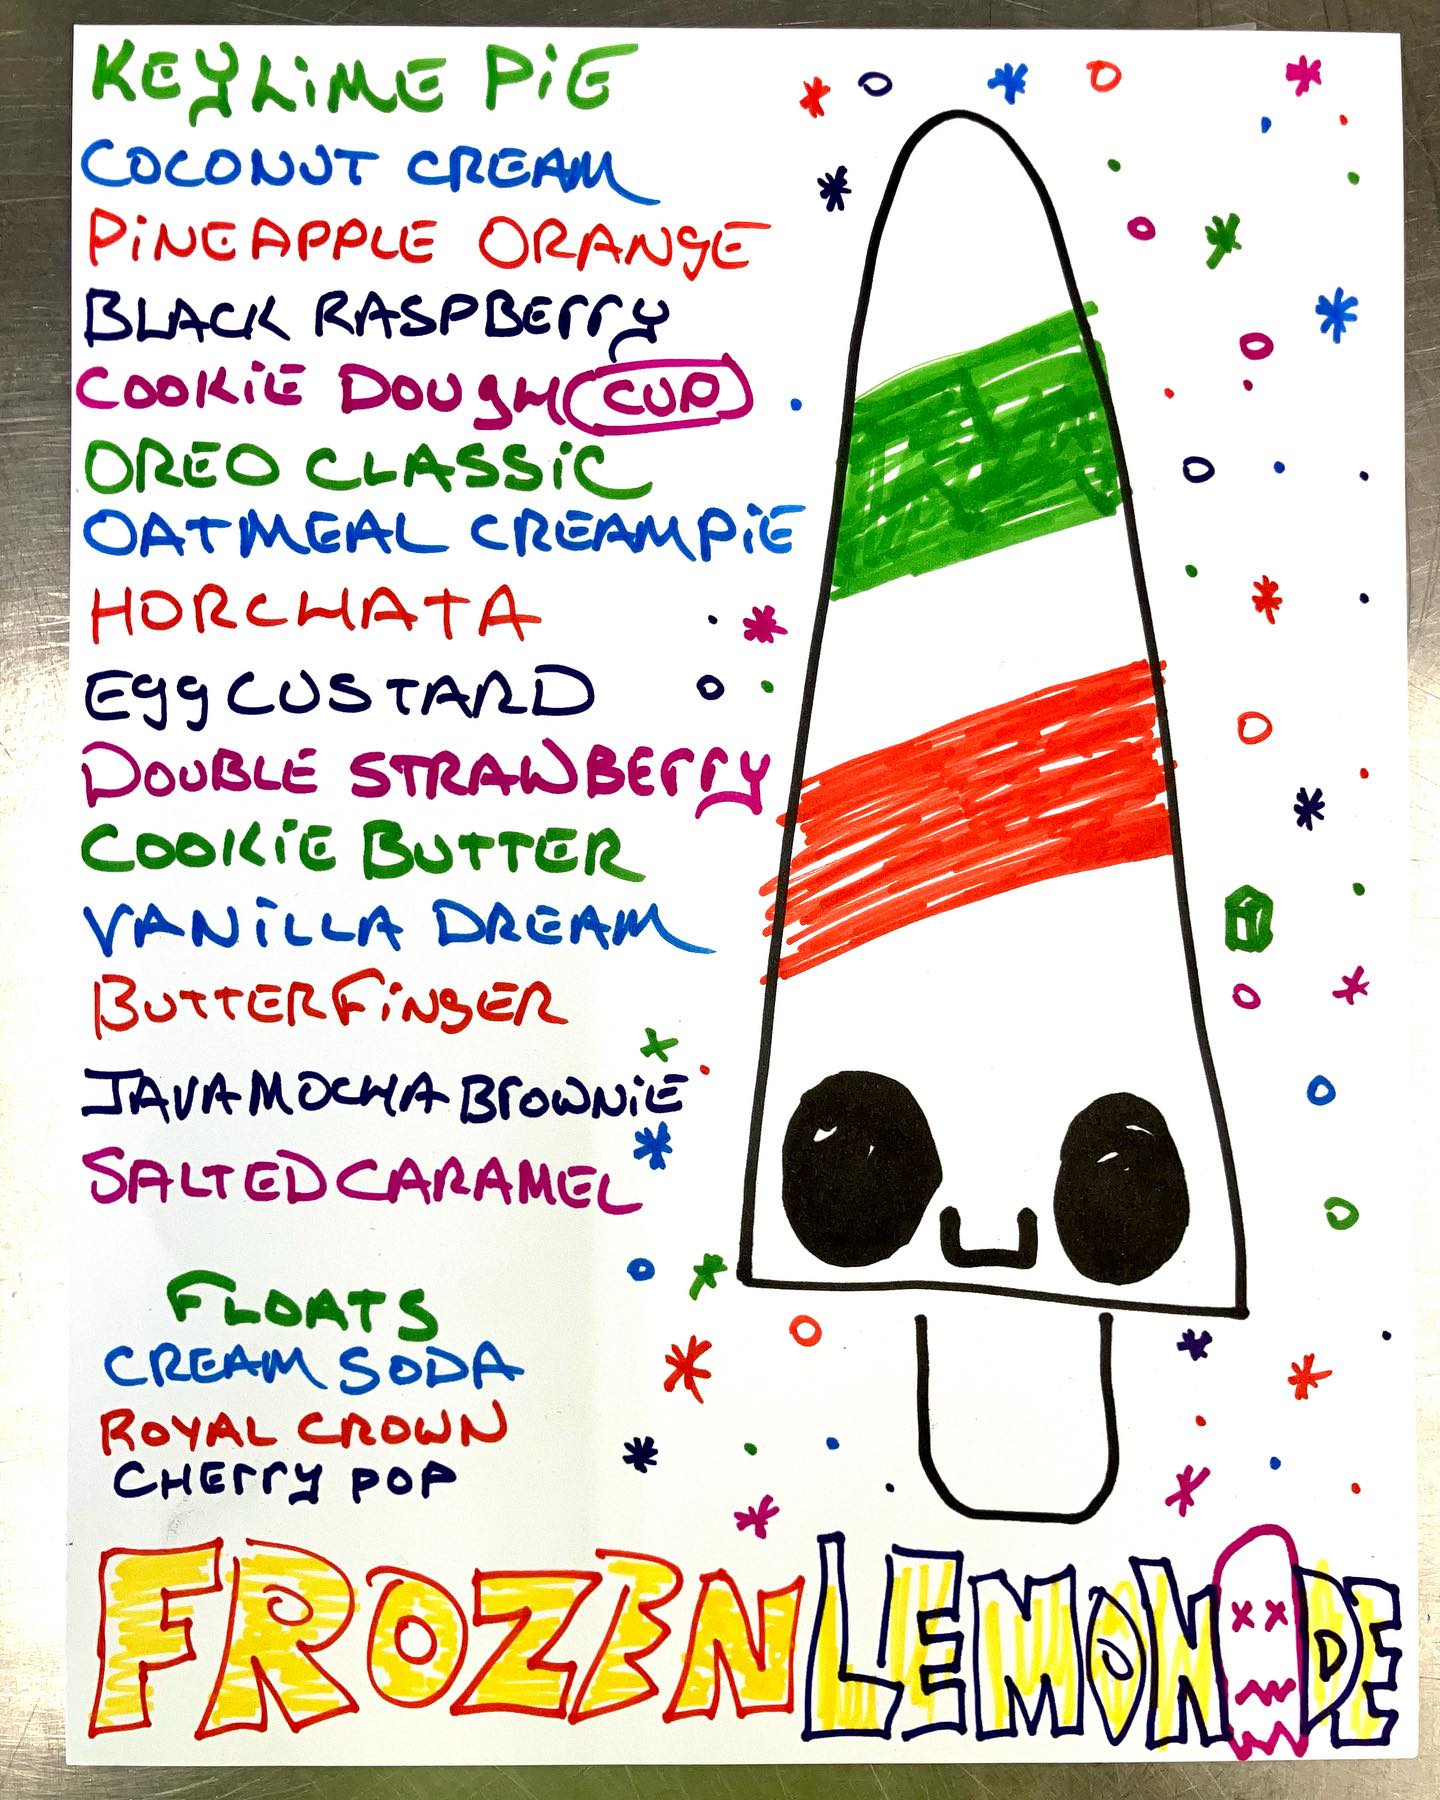 KEYLIME PIE
COCONUT CREAM
PINEAPPLE ORANGE
BLACK RASPBERRY
COOKIE DOUGH CUP
OREO CLASSIC
OATMEAL CREAMPIE
HORCHATA
EGG CUSTARD
DOUBLE STRAWBERRY
COOKIE BUTTER
VANILLA DREAM
BUTTERFINGER
JAVA MOCHA BROWNIE
SALTED CARAMEL
FLOATS
CREAM SODA
ROYAL CROWN
CHERRY POP
FROZEN LEMONADE